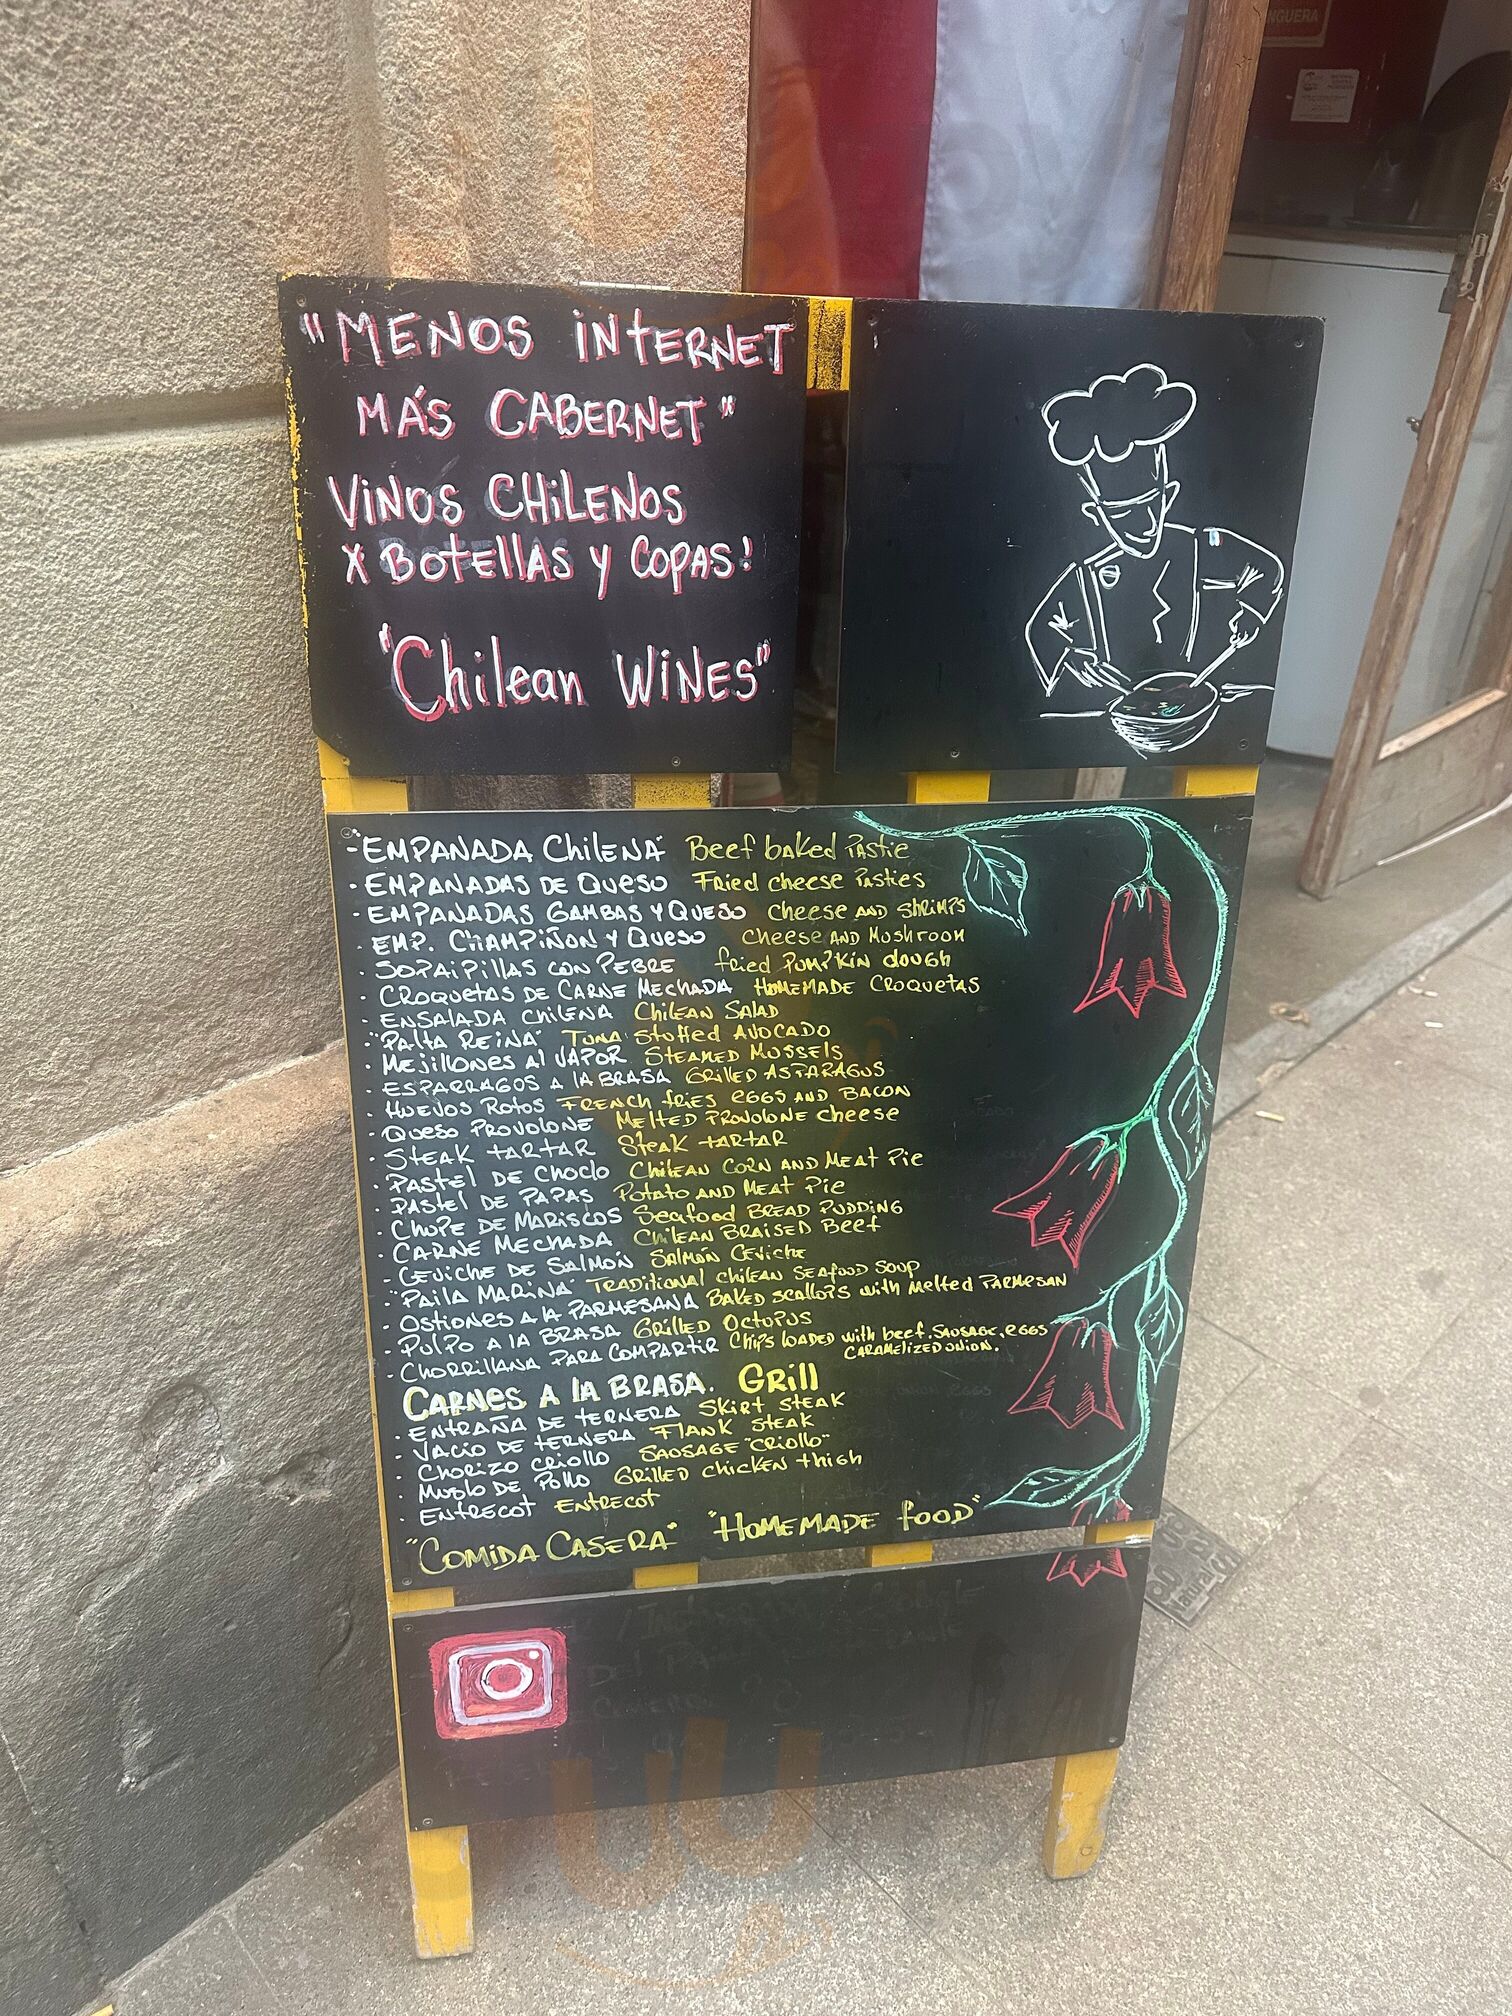 "MENOS INTERNET
MÁS CABERNET"
VINOS CHILENOS
X BOTELLAS Y COPAS!
"Chilean WINES"
NGUERA
-"EMPANADA CHILENA" Beef baked Pastie
· EMPANADAS DE QUESO Fried cheese Pasties
· EMPANADAS GAMBAS Y QUESO Cheese AND Shrimps
· EMP. CHAMPIÑON Y QUESO Cheese AND Mushroom
· SOPAIPILLAS CON PEBRE fried PUMPKIN dough
· CROQUETAS DE CARNE MECHADA HOMEMADE CROQUETAS
· ENSALADA CHILENA CHILEAN SALAD
·"PALTA REINA" TUNA Stuffed AVOCADO
· MEJILLONES AL VAPOR STEAMED MUSSELS
· ESPARRAGOS A LA BRASA GRILLED ASPARAGUS
· HUEVOS ROTOS FRENCH fries EGGS AND BACON
· QUESO PROVOLONE MELTED PROVOLONE cheese
· STEAK TARTAR Steak tartar
· PASTEL DE CHOCLO CHILEAN CORN AND MEAT Pie
· PASTEL DE PAPAS POTATO AND MEAT Pie
· CHUPE DE MARISCOS Seafood BREAD PUDDING
· CARNE MECHADA CHILEAN BRAISED BEEF
· CEVICHE DE SALMÓN SALMÓN CEVICHE
·"PAILA MARINA" TRADITIONAL chilEAN SEAfOOD SOUP
· OSTIONES A LA PARMESANA BAKED scallops with Melted PARMESAN
· PULPO A LA BRASA GRILLED OCTOPUS
· CHORRILLANA PARA COMPARTIR Chips LOADED with beef, SAUSAGE, EGGS
CARAMELIZED ONION.
CARNES A LA BRASA. GRILL
· ENTRAÑA DE TERNERA SKIRT STEAK
· VACIO DE TERNERA FLANK STEAK
· CHORIZO CRIOLLO SAUSAGE "CRIOLLO"
· MUSLO DE POLLO GRILLED CHICKEN thigh
· ENTRECOT ENTRECOT
"COMIDA CASERA" "HOMEMADE FOOD"